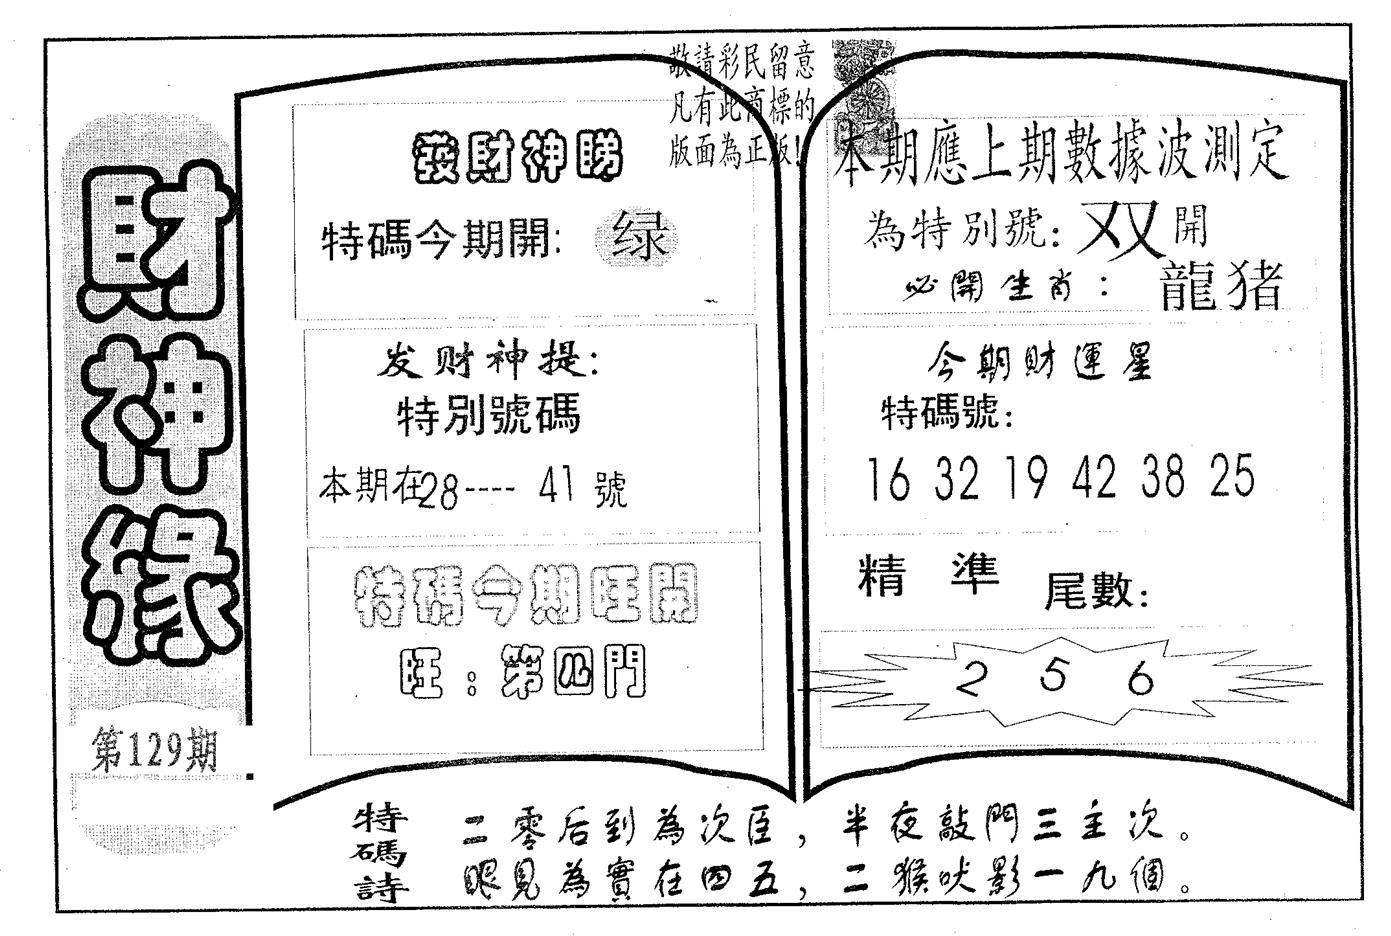 財神緣
第129期
敬請彩民留意
凡有此商標的
版面為正版!
發財神睇
特碼今期開: 绿
发财神提:
特別號碼
本期在28---- 41 號
特碼今期旺開
旺:第四門
本期應上期數據波測定
為特別號: 双 開
必開生肖: 龍猪
今期財運星
特碼號:
16 32 19 42 38 25
精 準 尾數:
2 5 6
特碼詩
二零后到為次臣,半夜敲門三主次。
眼見為實在四五,二猴吠影一九個。